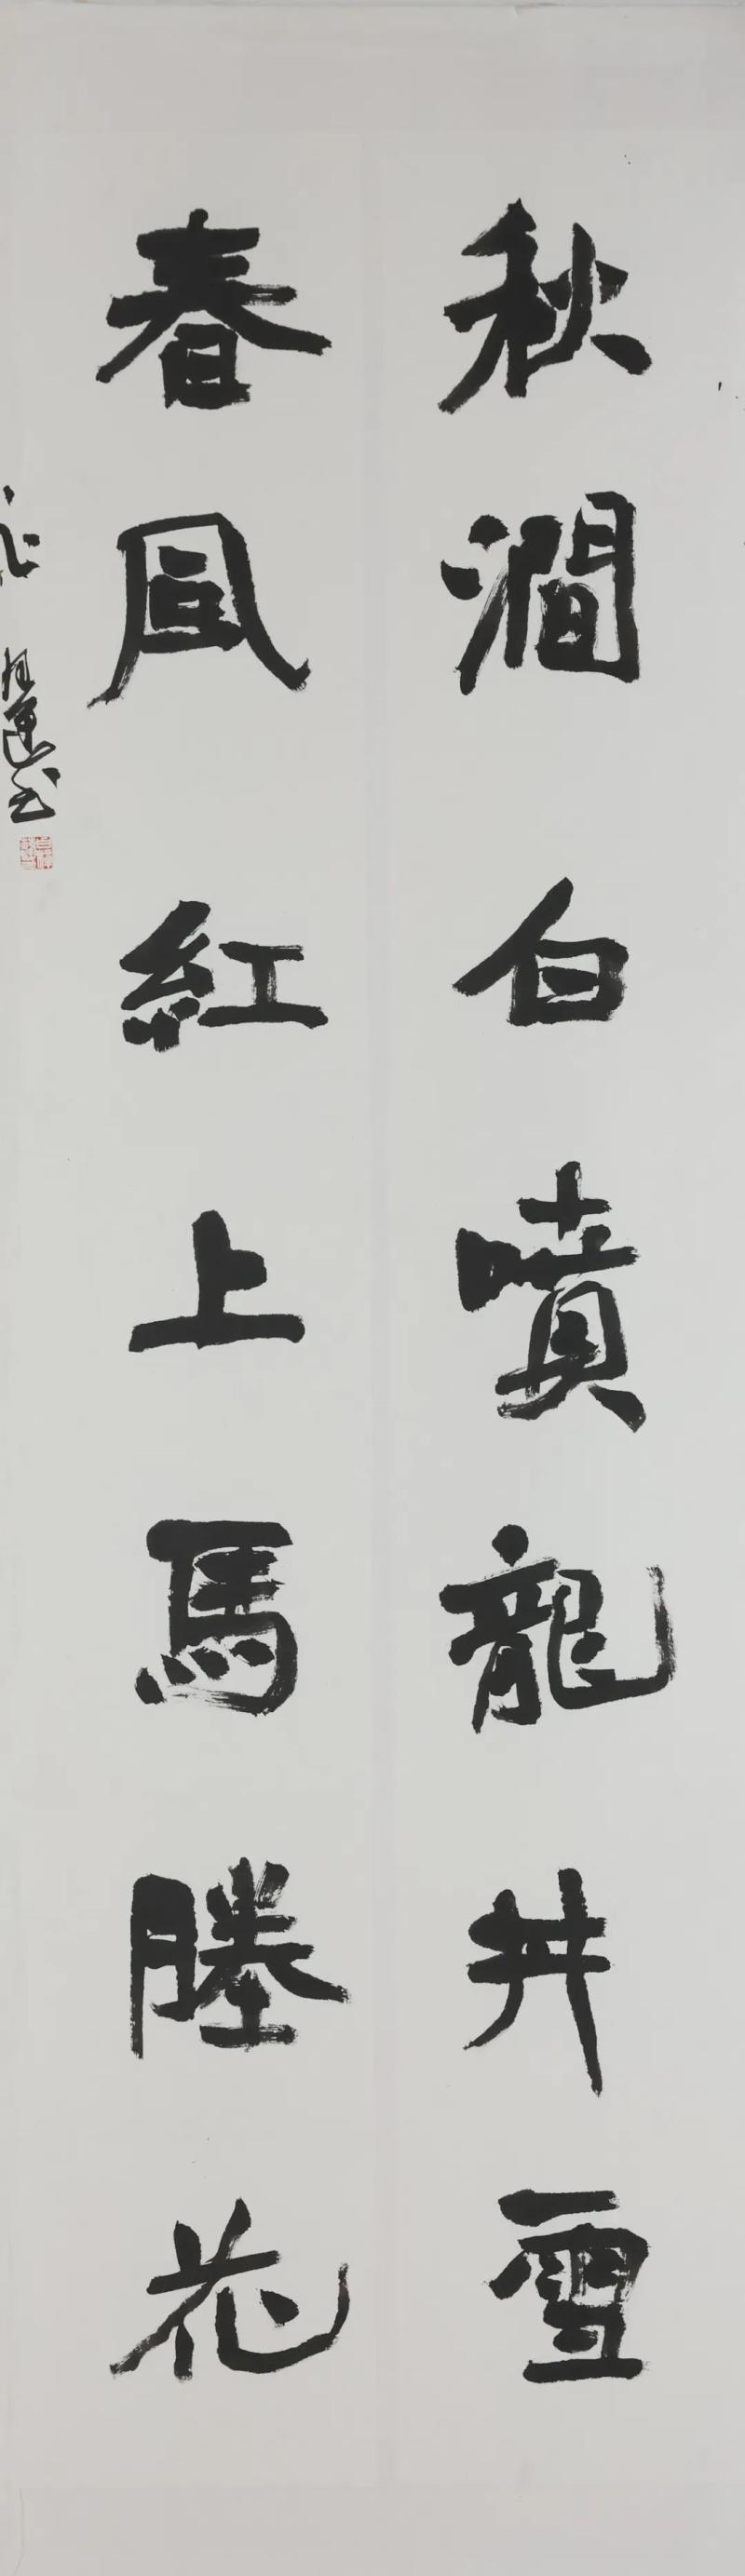 秋澗白噴龍井雪
春風紅上馬塍花